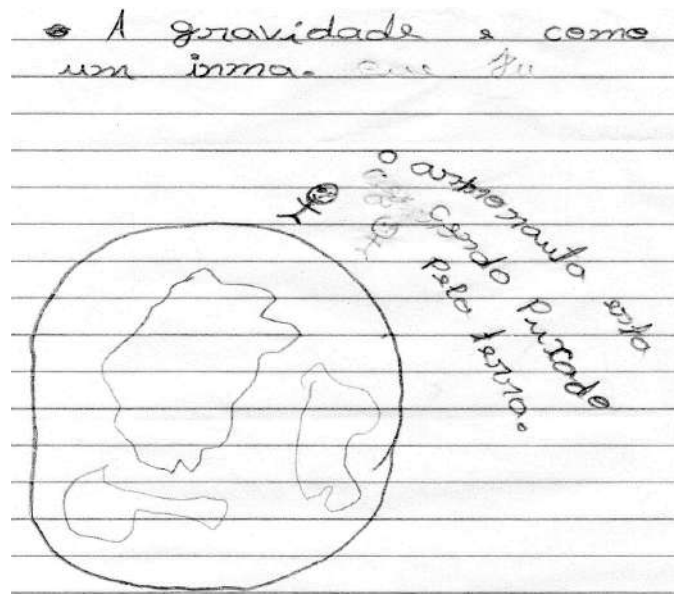 A gravidade e como
um inma.
o astronauta esta
cendo Puxado
Pela terra.